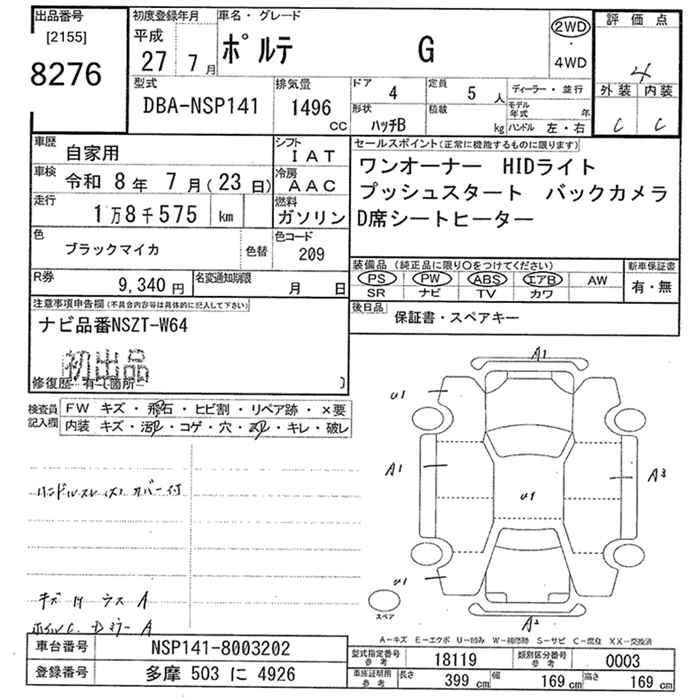 出品番号
[2155]
8276
初度登録年月
平成
27 7月
車名・グレード
ポルテ G
2WD
・
4WD
評価点
4
外装 内装
C C
型式
DBA-NSP141
排気量
1496
cc
ドア
4
定員
5 人
形状
ハッチB
積載
kg
ディーラー・並行
モデル年式 年
ハンドル 左・右
車歴
自家用
シフト
IAT
車検
令和 8年 7月(23日)
冷房
AAC
走行
1万8千575 km
燃料
ガソリン
色
ブラックマイカ
色替
色コード
209
R券
9,340円
名変通知期限
月 日
セールスポイント(正常に機能するものに限ります)
ワンオーナー HIDライト
プッシュスタート バックカメラ
D席シートヒーター
装備品(純正品に限り○をつけてください)
PS PW ABS エアB AW
SR ナビ TV カワ
新車保証書
有・無
後日品
保証書・スペアキー
注意事項申告欄(不具合内容等は具体的に記入して下さい)
ナビ品番NSZT-W64
初出品
修復歴 有(箇所 )
検査員
記入欄
FW キズ・飛石・ヒビ割・リペア跡・×要
内装 キズ・汚レ・コゲ・穴・スレ・キレ・破レ
ハンドルスレ(ス) カバー付
キズ H ウス A
ホイルC. Dミラー A
A1
U1
A1
U1
A3
U1
A2
スペア
A-キズ E-エクボ U-凹み W-補修跡 S-サビ C-腐食 XX-交換済
車台番号
NSP141-8003202
登録番号
多摩 503 に 4926
型式指定番号
参考
18119
類別区分番号
参考
0003
車庫証明用
参考
長さ
399 cm
幅
169 cm
高さ
169 cm